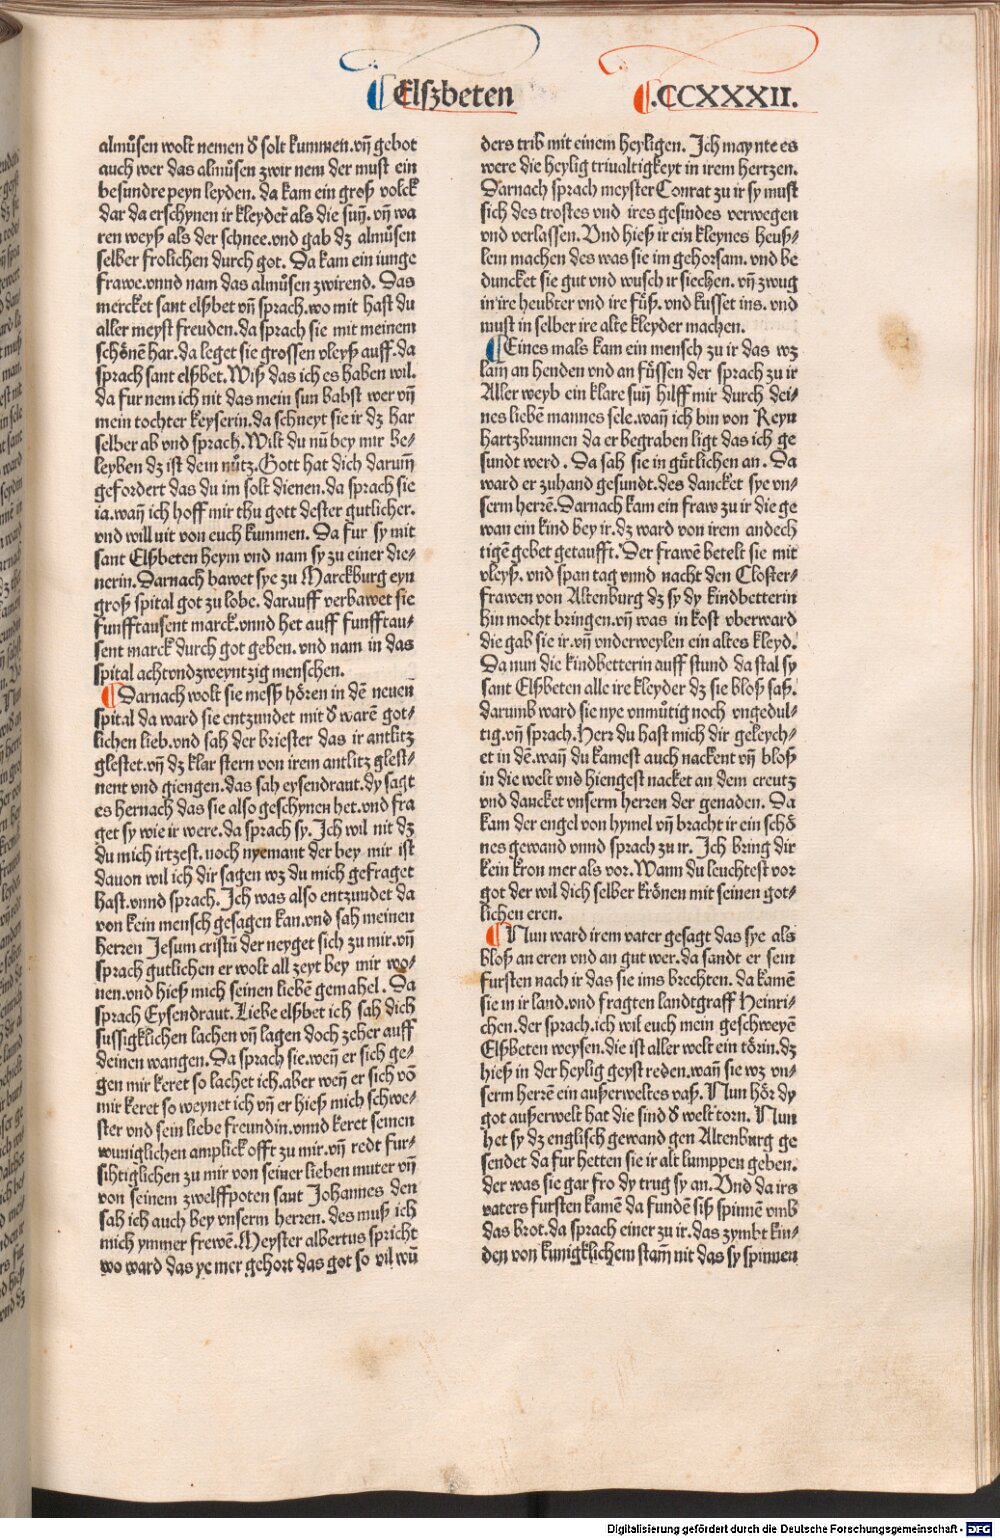 Elßbeten
.CCXXXII.
almůsen wolt nemen d̕ solt kummen.vñ gebot
auch wer das almůsen zwir nem der must ein
besundre peyn leyden. da kam ein groß volck
dar da erschynen ir kleyder̃ als die suñ. vñ wa
ren weyß als der schnee.vnd gab dz almůsen
selber frolichen durch got. Da kam ein iunge
frawe.vnnd nam das almůsen zwirend. Das
mercket sant elßbet vñ sprach.wo mit hast du
aller meyst freuden.da sprach sie mit meinem
schônē har.da leget sie grossen vleyß auff.da
sprach sant elßbet.Wiß das ich es haben wil.
da fur nem ich nit das mein sun babst wer vñ
mein tochter keyserin.da schneyt sie ir dz har
selber ab vnd sprach.Wilt du nū bey mir be⸗
leyben dz ist dein nůtz.Gott hat dich darum̄
gefordert das du im solt dienen.da sprach sie
ia.wañ ich hoff mir thu gott dester gutlicher.
vnd will nit von euch kummen. Da fur sy mit
sant Elßbeten heym vnd nam sy zu einer die⸗
nerin. Darnach bawet sye zu Marckburg eyn
groß spital got zu lobe. darauff verbawet sie
funfftausent marck.vnnd het auff funfftau⸗
sent marck durch got geben. vnd nam in das
spital achtvndzweyntzig menschen.
Darnach wolt sie messz hôren in dē neuen
spital da ward sie entzundet mit d̕ warē got⸗
lichen lieb.vnd sah der briester das ir antlitz
glestet.vñ dz klar stern von irem antlitz glest⸗
nent vnd giengen.das sah eysendraut.dy sagt
es hernach das sie also geschynen het.vnd fra
get sy wie ir were.da sprach sy. Ich wil nit dz
du mich irtzest. noch nyemant der bey mir ist
dauon wil ich dir sagen wz du mich gefraget
hast.vnnd sprach. Ich was also entzundet da
von kein mensch gesagen kan.vnd sah meinen
herren Jesum cristū der neyget sich zu mir.vñ
sprach gutlichen er wolt all zeyt bey mir wo⸗
nen.vnd hieß mich seinen liebē gemahel. Da
sprach Eysendraut. Liebe elßbet ich sah dich
sussigklichen lachen vñ lagen doch zeher auff
deinen wangen. Da sprach sie.weñ er sich ge⸗
gen mir keret so lachet ich.aber weñ er sich vō
mir keret so weynet ich vñ er hieß mich schwe⸗
ster vnd sein liebe freundin.vnnd keret seinen
wuniglichen amplick offt zu mir.vñ redt fur⸗
sihtiglichen zu mir von seiner lieben muter vñ
von seinem zwelffpoten sant Johannes den
sah ich auch bey vnserm herren. des muß ich
mich ymmer frewē.Meyster albertus spricht
wo ward das ye mer gehort das got so vil wū
ders trib mit einem heyligen. Ich maynte es
were die heylig triualtigkeyt in irem hertzen.
Darnach sprach meyster Conrat zu ir sy must
sich des trostes vnd ires gesindes verwegen
vnd verlassen. Vnd hieß ir ein kleynes heuß⸗
lein machen des was sie im gehorsam. vnd be
duncket sie gut vnd wusch ir siechen. vñ zwug
in ire heubter vnd ire fůß. vnd kusset ins. vnd
must in selber ire alte kleyder machen.
Eines mals kam ein mensch zu ir das wz
lam̄ an henden vnd an fůssen der sprach zu ir
Aller weyb ein klare suñ hilff mir durch dei⸗
nes liebē mannes sele.wañ ich bin von Reyn
hartzbrunnen da er begraben ligt das ich ge
sundt werd. Da sah sie in gůtlichen an. Da
ward er zuhand gesundt.des dancket sye vn⸗
serm herrē.Darnach kam ein fraw zu ir die ge
wan ein kind bey ir.dz ward von irem andech
tigē gebet getaufft. Der frawē betelt sie mit
vleyß. vnd span tag vnnd nacht den Closter⸗
frawen von Altenburg dz sy dy kindbetterin
hin mocht bringen.vñ was in kost vberward
die gab sie ir.vñ vnderweylen ein altes kleyd.
Da nun die kindbetterin auff stund da stal sy
sant Elßbeten alle ire kleyder dz sie bloß saß.
darumb ward sie nye vnmůtig noch vngedul⸗
tig.vñ sprach.Herr du hast mich dir geleych⸗
et in dē.wañ du kamest auch nackent vñ bloß
in die welt vnd hiengest nacket an dem creutz
vnd dancket vnserm herren der genaden. Da
kam der engel von hymel vñ bracht ir ein schô
nes gewand vnnd sprach zu ir. Ich bring dir
kein kron mer als vor. Wann du leuchtest vor
got der wil dich selber krônen mit seinen got⸗
lichen eren.
Nun ward irem vater gesagt das sye als
bloß an eren vnd an gut wer.da sandt er sein
fursten nach ir das sie ims brechten. da kamē
sie in ir land.vnd fragten landtgraff Heinri⸗
chen.der sprach.ich wil euch mein geschweyē
Elßbeten weysen.die ist aller welt ein tôrin.dz
hieß in der heylig geyst reden.wañ sie wz vn⸗
serm herrē ein außerweltes vaß. Nun hôr dy
got außerwelt hat die sind d̕ welt torn. Nun
het sy dz englisch gewand gen Altenburg ge
sendet da fur hetten sie ir alt lumppen geben.
der was sie gar fro dy trug sy an. Vnd da irs
vaters fursten kamē da fundē siß spinnē vmb
das brot.da sprach einer zu ir.das zymbt kin⸗
den von kunigklichem stam̄ nit das sy spinnen
Digitalisierung gefördert durch die Deutsche Forschungsgemeinschaft - DFG